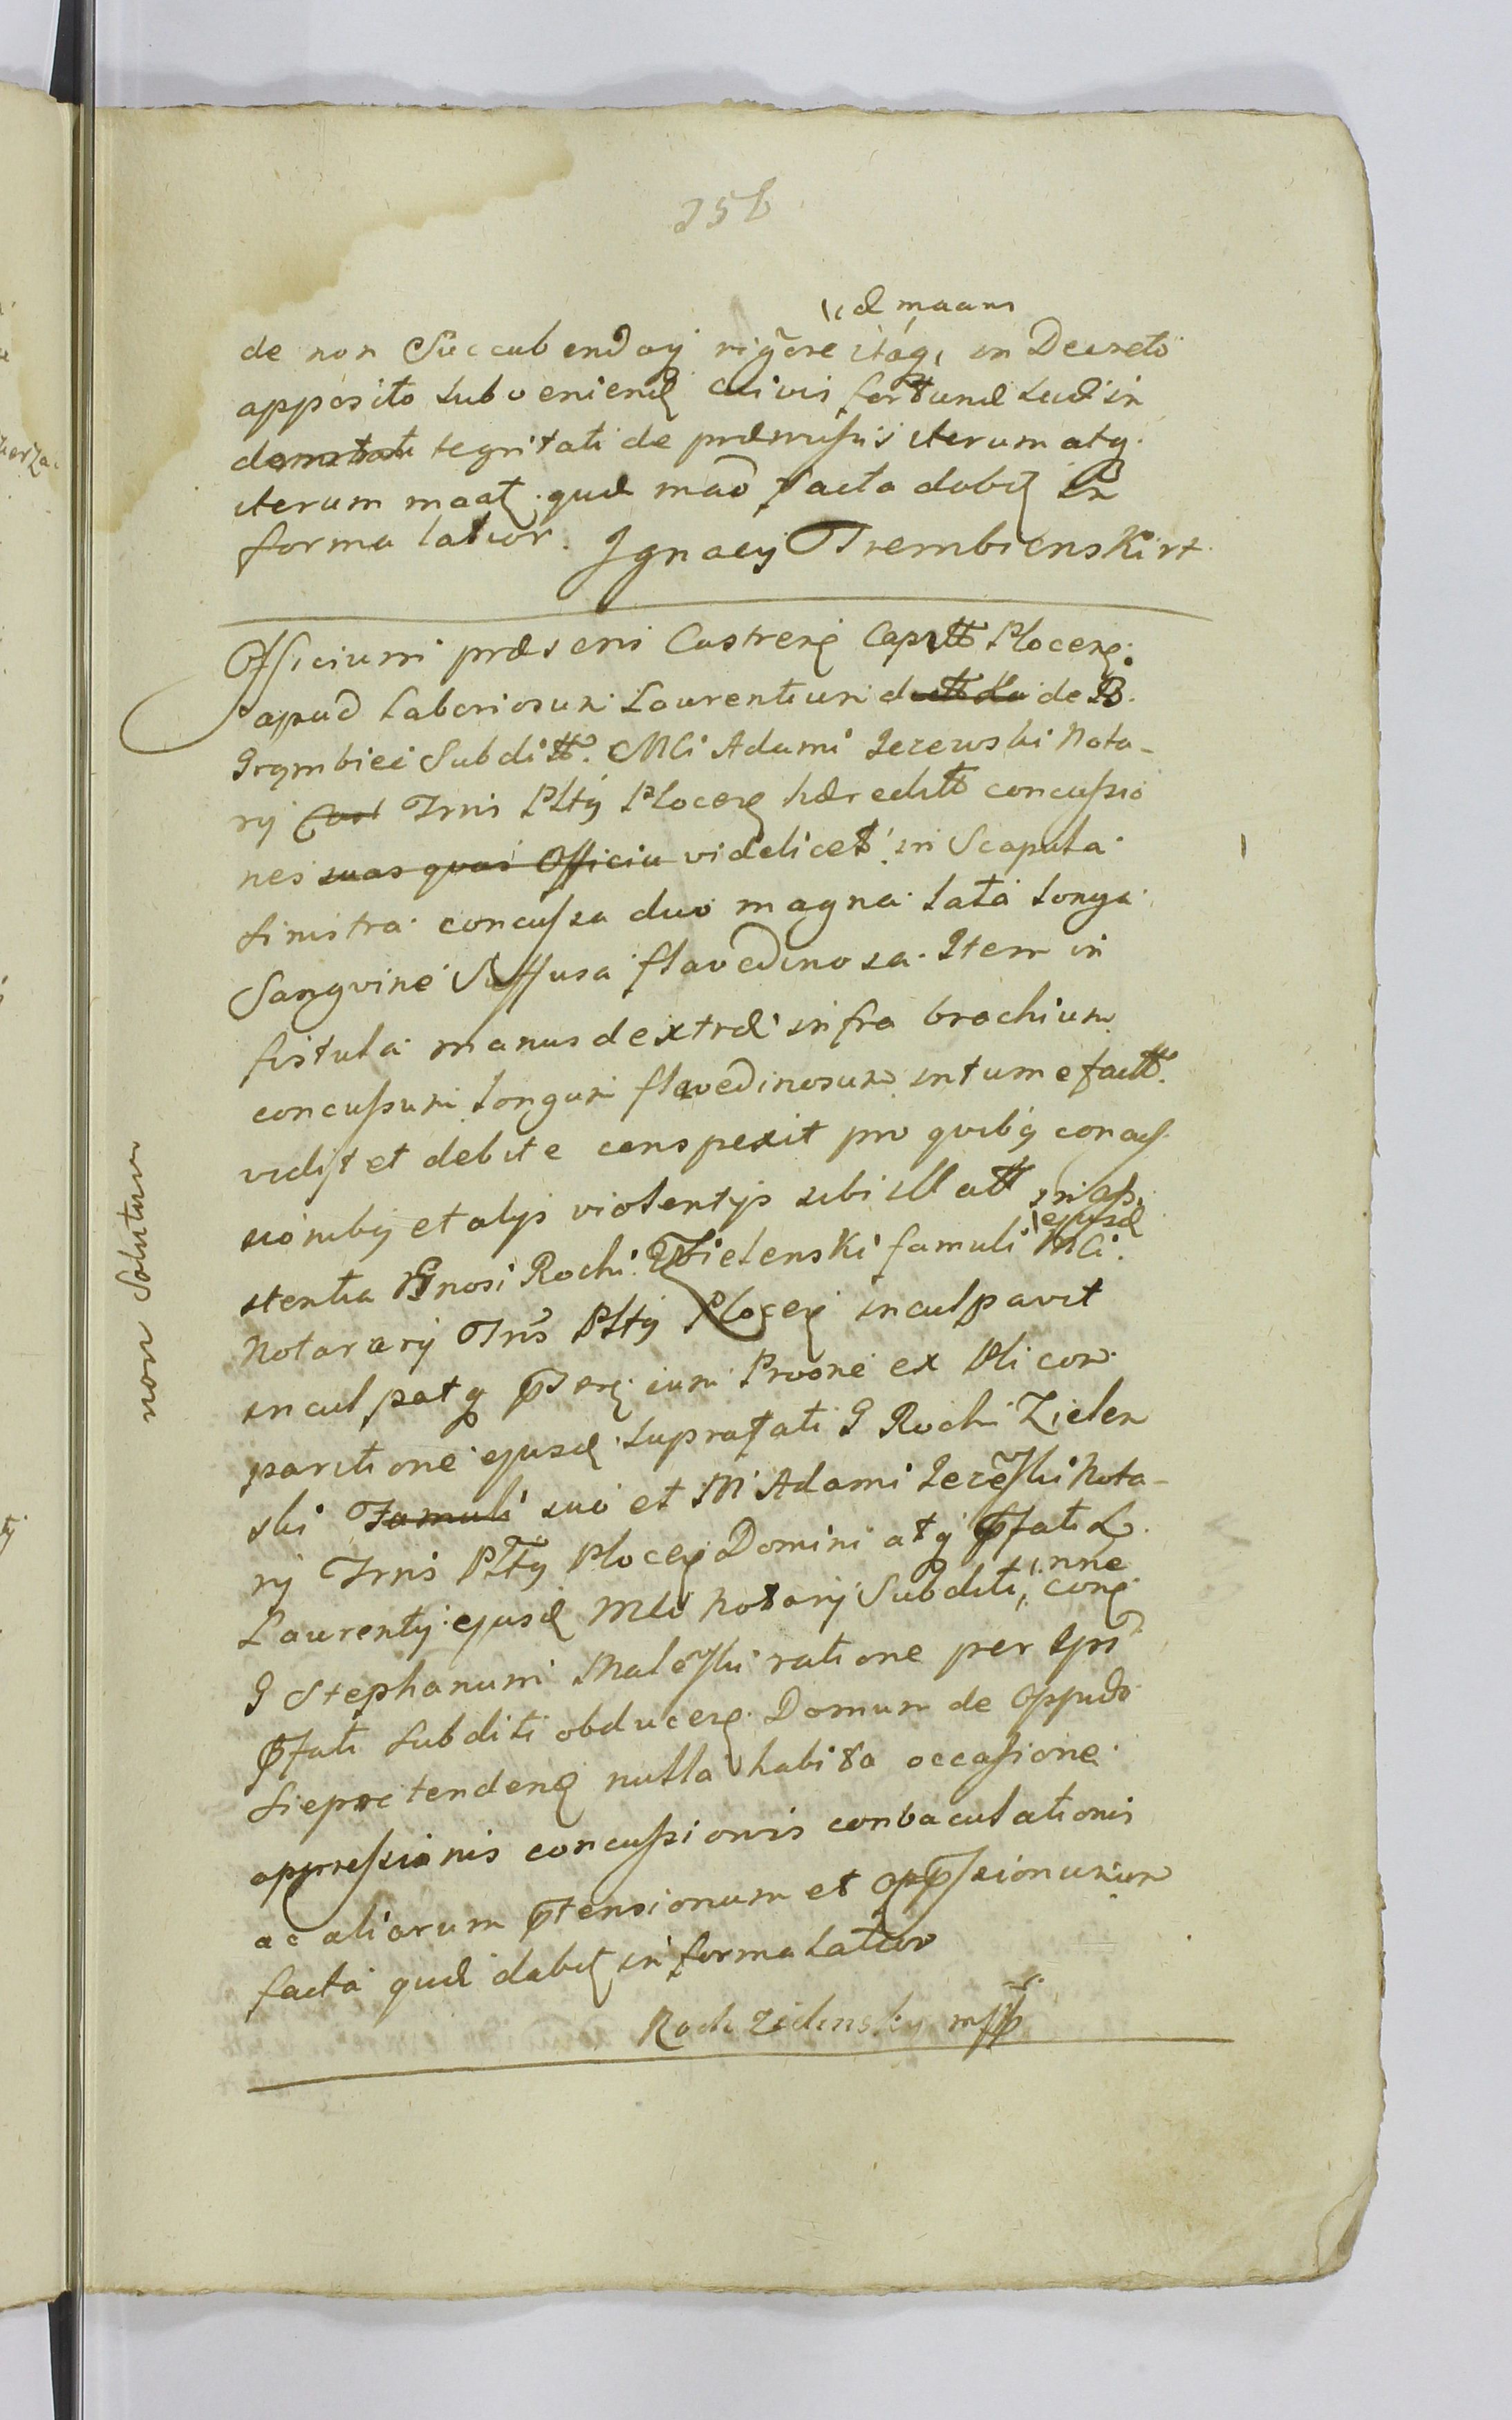 356
\id maans
de non Succubendoij rig̃ore itaq, in Decreto
apposito subveniend cuivis fortunæ suæ in
tegritati de præmissis iterum atq.
iterum maat quæ mao facta dabit in
forma latior. Ignacy Trembienski rt.
Officium præsens Castrense Capitt Plocens.
apud laboriosum Laurentium de B.
Grzmbice Subditt. Mci Adami Jezewski Nota-
rij Cast Trris Pltij Plocens hæreditt concussio
nes suas quas Officiu videlicet in Scapula
sinistra concussa duo magna lata longa
Sangvine Suffusa flavedinosa. Item in
fistula manus dextræ infra brachium
concussum longum flavedinosum intumefactt.
vidit et debite conspexit pro qvibq concus
sionibq et alys violentys sibi illatt in as
\ejusd
stentia Gnosi Rochi Zielenski famuli Mci.
Notararij Trris Pltij Plocens inculpavit
inculpatq ptens cum Prone ex pli com
paritione ejusd suprafati G Rochi Zielen
ski Famuli suo et M Adami Jezeski Nota-
rij Trris Pltij Plocens Domini atq pfati L.
nne
Laurentij ejusd Mci Notarij Subditi, cong
G Stephanum Maleski ratione per ipm
pfati Subditi obducens Domum de Oppido
Sieprc tendend nulla habita occasione
oppressionis concussionis conbaculationis
ac aliarum ptensionum et oppssionum
facta quæ dabit in forma latior
Roch Zielensky mpp
non Solutum